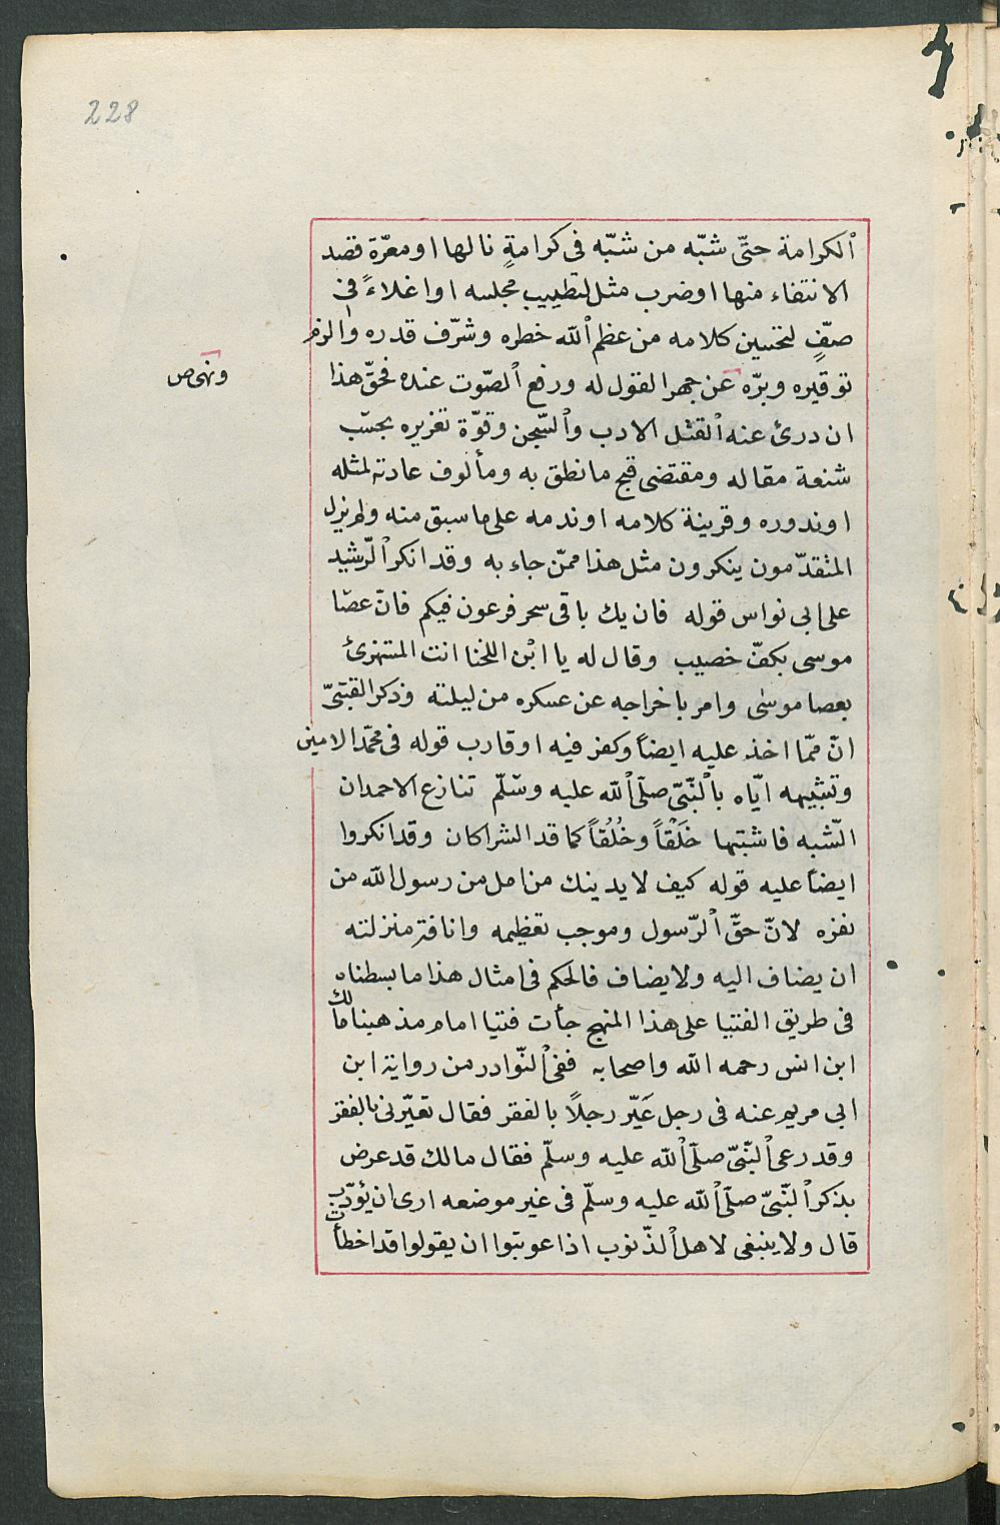 228
الكرامة حتّى شبّه من شبّه فى كرامةٍ نالها او معرّة قصد
الانتفاء منها او ضرب مثل لتطييب مجلسه او اغلاءً فى
صفٍ لتحسين كلامه من عظم الله خطره وشرّف قدره والزم
توقيره وبرّه عن جهر القول له ورفع الصّوت عنده فحقّ هذا
ونهى ص
ان درئ عنه القتل الادب والسّجن وقوّة تعزيره بحسب
شنعة مقاله ومقتضى قبح ما نطق به ومألوف عادته لمثله
او ندوره وقرينة كلامه او ندمه على ما سبق منه ولم يزل
المتقدّمون ينكرون مثل هذا ممّن جاء به وقد انكر الرّشيد
على ابى نواس قوله فان يك باقى سحر فرعون فيكم فانّ عصا
موسى بكفّ خصيب وقال له يا ابْن اللخنا انت المستهزئ
بعصا موسٰى وامر باخراجه عن عسكره من ليلته وذكر القتبىّ
انّ ممّا اخذ عليه ايضاً وكفر فيه او قارب قوله فى محمّد الامين
وتشبيهه ايّاه بالنّبىّ صلّى الله عليه وسلّم تنازع الاحمدان
الشّبه فاشتبها خَلْقاً وخُلُقاً كما قد الشراكان وقد انكروا
ايضاً عليه قوله كيف لا يدينك من امل من رسول الله من
نفره لانّ حقّ الرّسول وموجب تعظيمه وانافة منزلته
ان يضاف اليه ولا يضاف فالحكم فى امثال هذا ما بسطناه
فى طريق الفتيا على هذا المنهج جأت فتيا امام مذهبنا مالك
ابن انس رحمه الله واصحابه ففى النّوادر من رواية ابن
ابى مريم عنه فى رجل عَيّر رجلاً بالفقر فقال تعيّرنى بالفقر
وقد رعى النّبىّ صلّى الله عليه وسلّم فقال مالك قد عرض
بذكر النّبىّ صلّى الله عليه وسلّم فى غير موضعه ارى ان يؤدّب
قال ولا ينبغى لاهل الذّنوب اذا عوتبوا ان يقولوا قد اخطأت